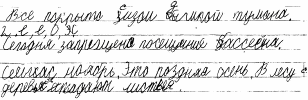 Всё покрыто сизой дымкой тумана.
1, е, е, О, Ж
Сегодня запрещено посещение бассейна.
Сейчас ноябрь. Это поздняя осень. В лесу с
деревьев опадают листья.